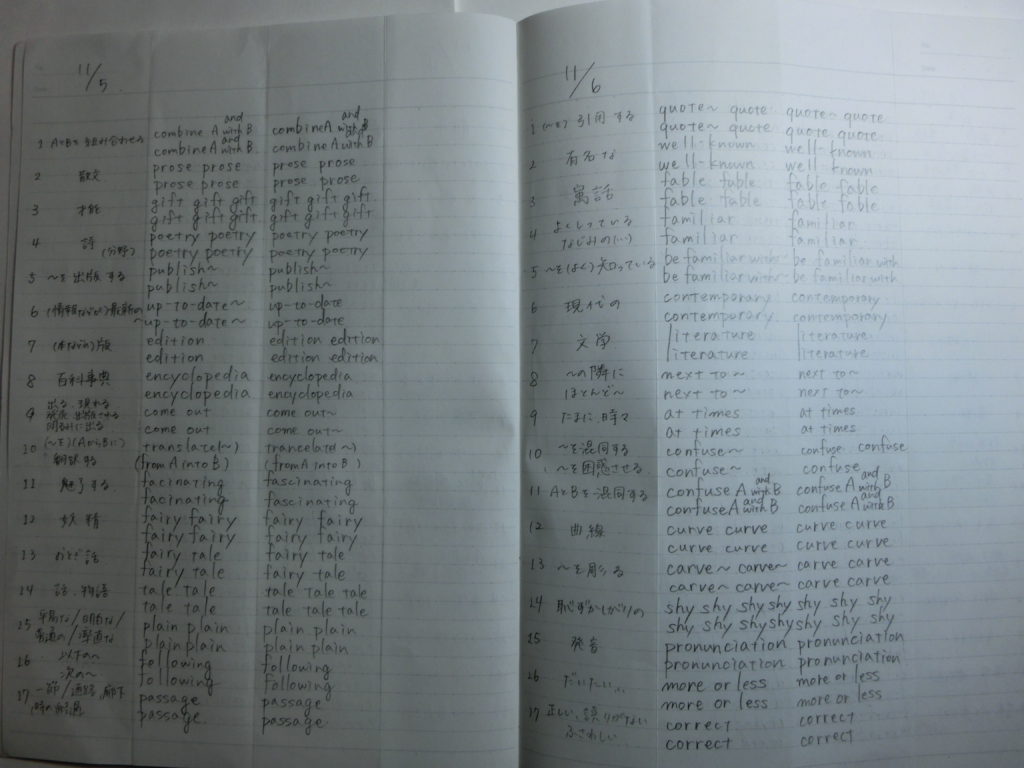 11/5
1 AとBを組み合わせる combine A and with B combine A and with B
combine A and with B combine A with B
2 散文 prose prose prose prose
prose prose prose prose
3 才能 gift gift gift gift gift gift
gift gift gift gift gift gift
4 詩(分野) poetry poetry poetry poetry
poetry poetry poetry poetry
5 ～を出版する publish~ publish~
publish~ publish~
6 (情報などが)最新の up-to-date~ up-to-date
~up-to-date~ up-to-date
7 (本などの)版 edition edition edition
edition edition edition
8 百科事典 encyclopedia encyclopedia
encyclopedia encyclopedia
9 出る、現れる come out come out~
明るみに出る come out come out~
10 (～を)(AからBに) translate(~) trancelate(~)
翻訳する (from A into B) (from A into B)
11 魅了する facinating fascinating
facinating fascinating
12 妖精 fairy fairy fairy fairy
fairy fairy fairy fairy
13 おとぎ話 fairy tale fairy tale
fairy tale fairy tale
14 話、物語 tale tale tale tale tale
tale tale tale tale tale
15 plain plain plain plain
plain plain plain plain
16 以下の～ following following
次の～ following following
17 一節/通路、廊下 passage passage
passage passage
11/6
1 (～を)引用する quote~ quote quote quote
quote~ quote quote quote
2 有名な well-known well-known
well-known well-known
3 寓話 fable fable fable fable
fable fable fable fable
4 よくしっている familiar familiar
なじみの(い) familiar familiar
5 ～を(よく)知っている be familiar with~ be familiar with
be familiar with~ be familiar with
6 現代の contemporary contemporary
contemporary contemporary
7 文学 literature literature
literature literature
8 ～の隣に next to~ next to~
ほとんど～ next to~ next to~
9 たまに、時々 at times at times
at times at times
10 ～を混同する confuse~ confuse confuse
～を困惑させる confuse~ confuse
11 AとBを混同する confuse A and with B confuse A and with B
confuse A and with B confuse A and with B
12 曲線 curve curve curve curve
curve curve curve curve
13 ～を彫る carve~ carve~ carve carve
carve~ carve~ carve carve
14 恥ずかしがりの shy shy shy shy shy shy
shy shy shy shy shy shy
15 発音 pronunciation pronunciation
pronunciation pronunciation
16 だいたい more or less more or less
more or less more or less
17 正しい、誤りがない correct correct
ふさわしい correct correct